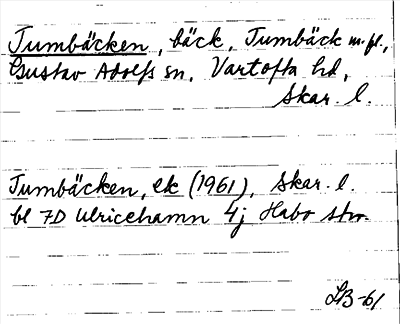 Tumbäcken, bäck, Tumbäck m. fl.,
Gustav Adolfs sn, Vartofta hd,
Skar. l.
Tumbäcken, ek (1961), Skar. l.
bl 7D Ulricehamn 4j Habo stn.
LB-61